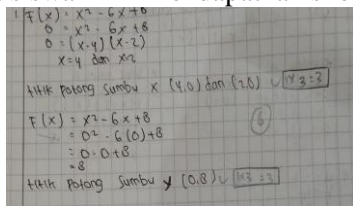 1 F(x) = x² - 6x + 8
0 = x² - 6x + 8
0 = (x-4) (x-2)
x=4 dan x=2
titik potong sumbu x (4,0) dan (2,0) 1x3=3
F(x) = x² - 6x + 8
= 0² - 6(0) + 8
= 0 - 0 + 8
= 8
6
titik potong sumbu y (0,8) 1x3=3